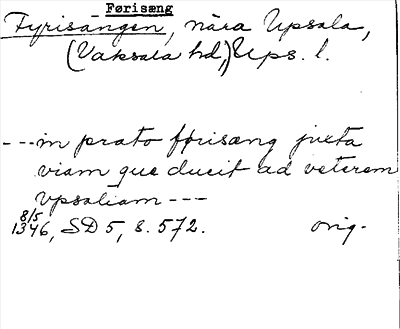 Førisæng
Fyrisängen, nära Upsala,
(Vaksala hd,) Ups. l.
---in prato førisæng juxta
viam que ducit ad veterem
Vpsaliam ---
8/5
1346, SD 5, s. 572. orig.